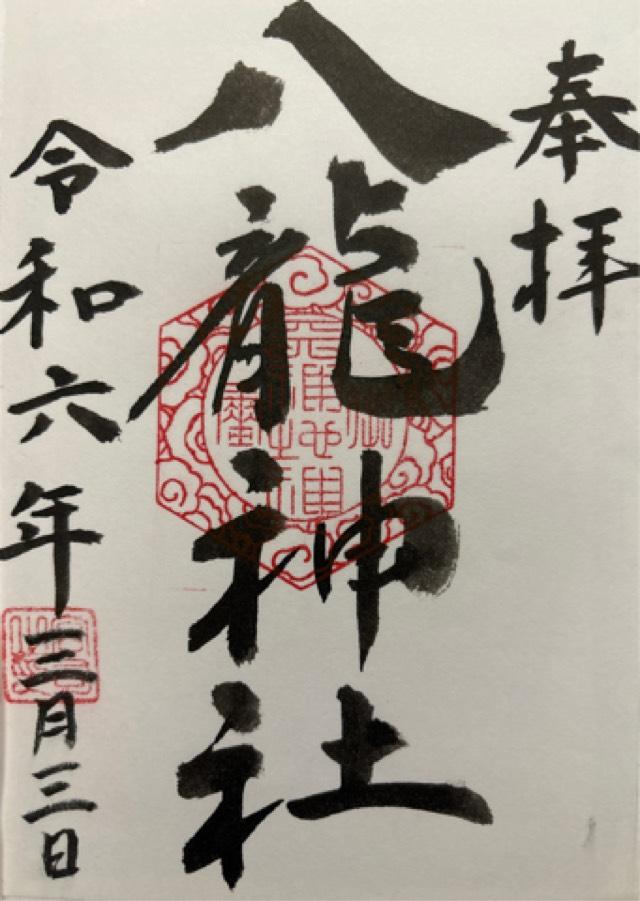 奉拝
八龍神社
令和六年三月三日